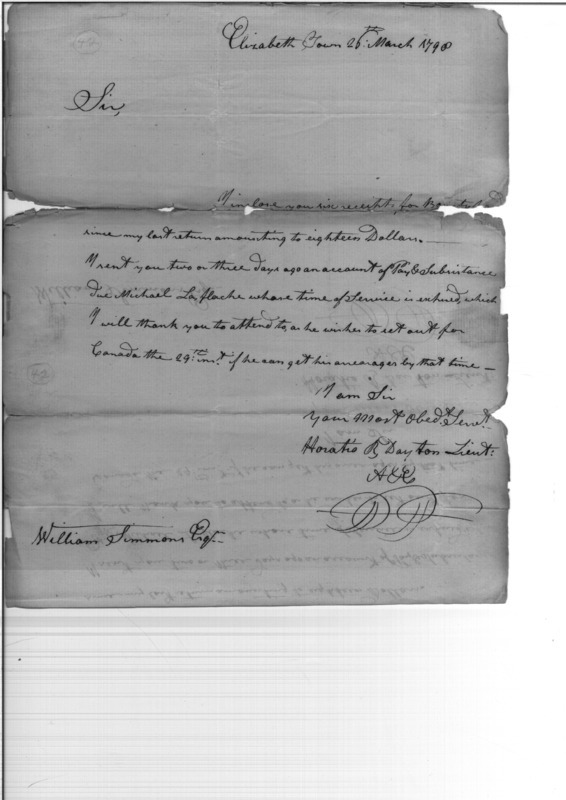 Elizabeth Town 26th March 1798
42
Sir,
I inclose you six receipts, for
since my last return amounting to eighteen Dollars.—
I sent you two or three days ago an account of Pay & Subsistance
due Michael La flache whose time of Service is expired, which
I will thank you to attend to, as he wishes to set out for
Canada the 29th inst. if he can get his arrearages by that time —
42
I am Sir
Your Most Obedt Servt.
Horatio R Dayton Lieut:
A&E
William Simmons Esqr.